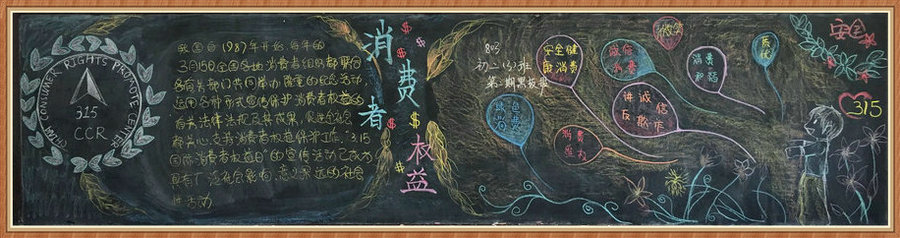 CHINA CONSUMER RIGHTS PROMOTE CENTER
315
CCR
我国自1987年开始,每年的
3月15日全国各地消费者组织都联合
各有关部门共同举办隆重的纪念活动
运用各种形式宣传保护消费者权益的
有关法律法规及其成果,
关心,支持消费者权益保护工作。"3.15
国际消费者权益日"的宣传活动已成为
具有广泛社会影响,意义深远的社会
性活动
消费者
权益
$
$
$
$
$
803
初二(3)班
第二期黑板报
安全健
康消费
诚信
消费
微笑
消费
和谐
质
讲诚信
反欺诈
消费
维权
安全
315